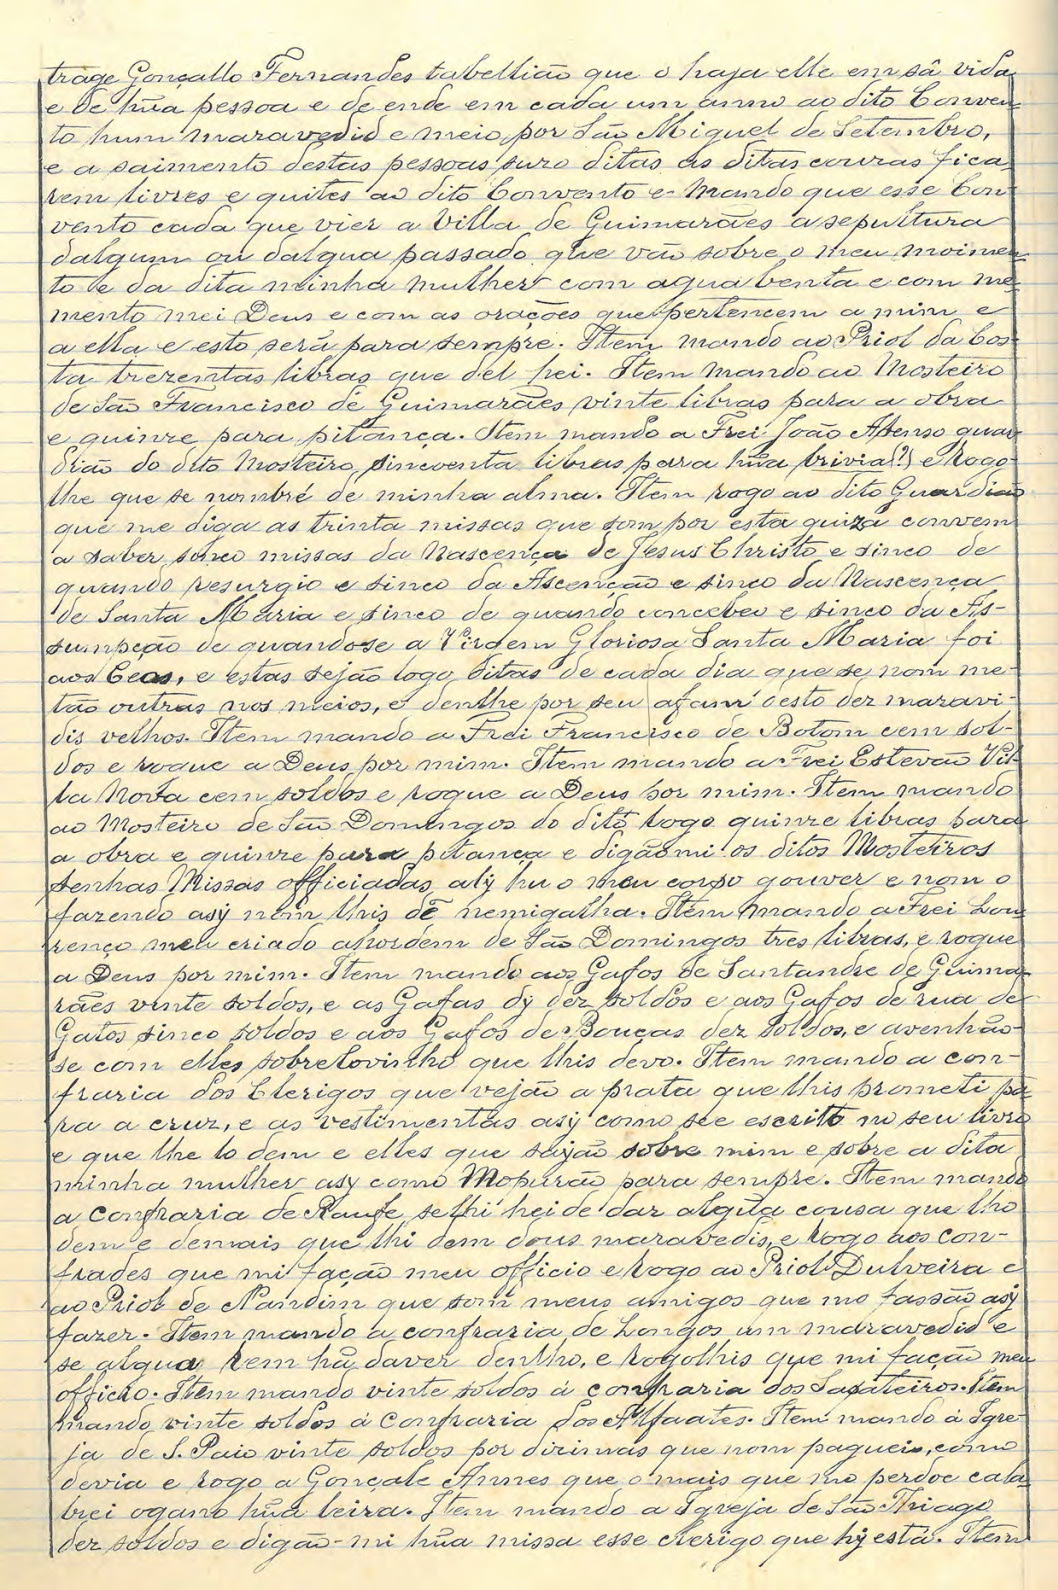 trage Gonçallo Fernandes tabellião que o haja elle em sã vida
e de hũa pessoa e de ende em cada um anno ao dito Conven-
to hum maravedid e meio por São Miguel de Setembro,
e a saimento destas pessoas suzo ditas as ditas couzas fica-
rem livres e quites ao dito Convento e mando que esse Con-
vento cada que vier a Villa de Guimarães a sepultura
dalgum ou dalgua passado que vão sobre o meu moimen-
to e da dita minha mulher com agua benta e com me-
mento mei Deus e com as orações que pertencem a mim e
a ella e esto será para sempre. Item mando ao Priol da Cos-
ta trezentas libras que del hei. Item mando ao Mosteiro
de São Francisco de Guimarães vinte libras para a obra
e quinze para pitança. Item mando a Frei João Afonso guar-
dião do dito Mosteiro sincoenta libras para hũa brivia(?) e rogo-
lhe que se nombré de minha alma. Item rogo ao dito Guardião
que me diga as trinta missas que som por esta guiza convem
a saber sinco missas da Nascença de Jesus Christo e sinco de
quando resurgio e sinco da Ascenção e sinco da Nascença
de Santa Maria e sinco de quando concebeo e sinco da As-
sumpção de quandose a Virgem Gloriosa Santa Maria foi
aos Ceos, e estas sejão logo ditas de cada dia que se nom me-
tão outras nos meios, e denlhe por seu afam desto dez maravi-
dis velhos. Item mando a Frei Francisco de Botom cem sol-
dos e rogue a Deus por mim. Item mando a Frei Estevão Vil-
la Nova cem soldos e rogue a Deus por mim. Item mando
ao Mosteiro de São Domingos do dito logo quinze libras para
a obra e quinze para pitança e digãomi os ditos Mosteiros
senhas Missas officiadas aly hu o meu corpo gouver e nom o
fazendo asy nem lhis dẽ nemigalha. Item mando a Frei Lou-
renço meu criado ahordem de São Domingos tres libras, e rogue
a Deus por mim. Item mando aos Gafos de Santandre de Guima-
rães vinte soldos, e as Gafas dy dez soldos e aos Gafos de rua de
Gatos sinco soldos e aos Gafos de Bouças dez soldos, e avenhão-
se com elles sobrelovinho que lhis devo. Item mando a con-
fraria dos Clerigos que vejão a prata que lhis prometi pa-
ra a cruz, e as vestimentas asy como see escrito no seu livro
e que lhe lo dem e elles que sayão sobre mim e sobre a dita
minha mulher asy como Mopurão para sempre. Item mando
a Confraria de Raufe, selhi hei de dar algũa cousa que lho
dem e demais que lhi dem dous maravedis, e rogo aos con-
frades que mi fação meu officio e rogo ao Priol Dulveira e
ao Priol de Nandim que som meus amigos que mo fassão asy
fazer. Item mando a confraria de Longos um maravedid e
se algua rem hã daver dentho, e rogolhis que mi fação meu
officio. Item mando vinte soldos á confraria dos Sapateiros. Item
mando vinte soldos á Confraria dos Alfaates. Item mando á Igre-
ja de S. Paio vinte soldos por dizimas que nom paguei, como
devia e rogo a Gonçale Annes que o mais que mo perdoe cala-
brei ogano hũa leira. Item mando a Igreja de São Thiago
dez soldos e digão-mi hũa missa esse clerigo que hy está. Item